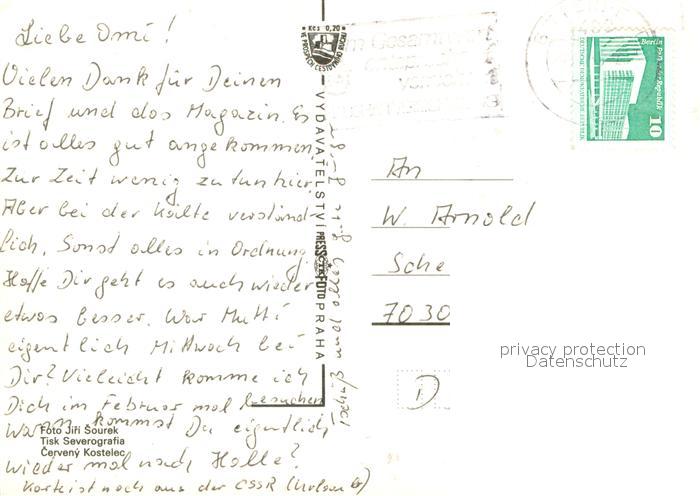 Liebe Omi!
Vielen Dank für Deinen
Brief und das Magazin. Es
ist alles gut angekommen.
Zur Zeit wenig zu tun hier.
Aber bei der Kälte verständ-
lich. Sonst alles in Ordnung.
Hoffe Dir geht es auch wieder
etwas besser. War Mutti
eigentlich Mittwoch bei
Dir? Vielleicht komme ich
Dich im Februar mal besuchen.
Wann kommst Du eigentlich
wieder mal nach Halle?
Karte ist noch aus der CSSR (Urlaub)
Foto Jiří Šourek
Tisk Severografia
Červený Kostelec
Kčs 0,20
VE PROSPĚCH CESTOVNÍHO RUCHU
VYDAVATELSTVÍ PRESSFOTO PRAHA
An
W. Arnold
Sche
7030
D
Berlin Palast der Republik
DEUTSCHE DEMOKRATISCHE REPUBLIK
10
privacy protection
Datenschutz